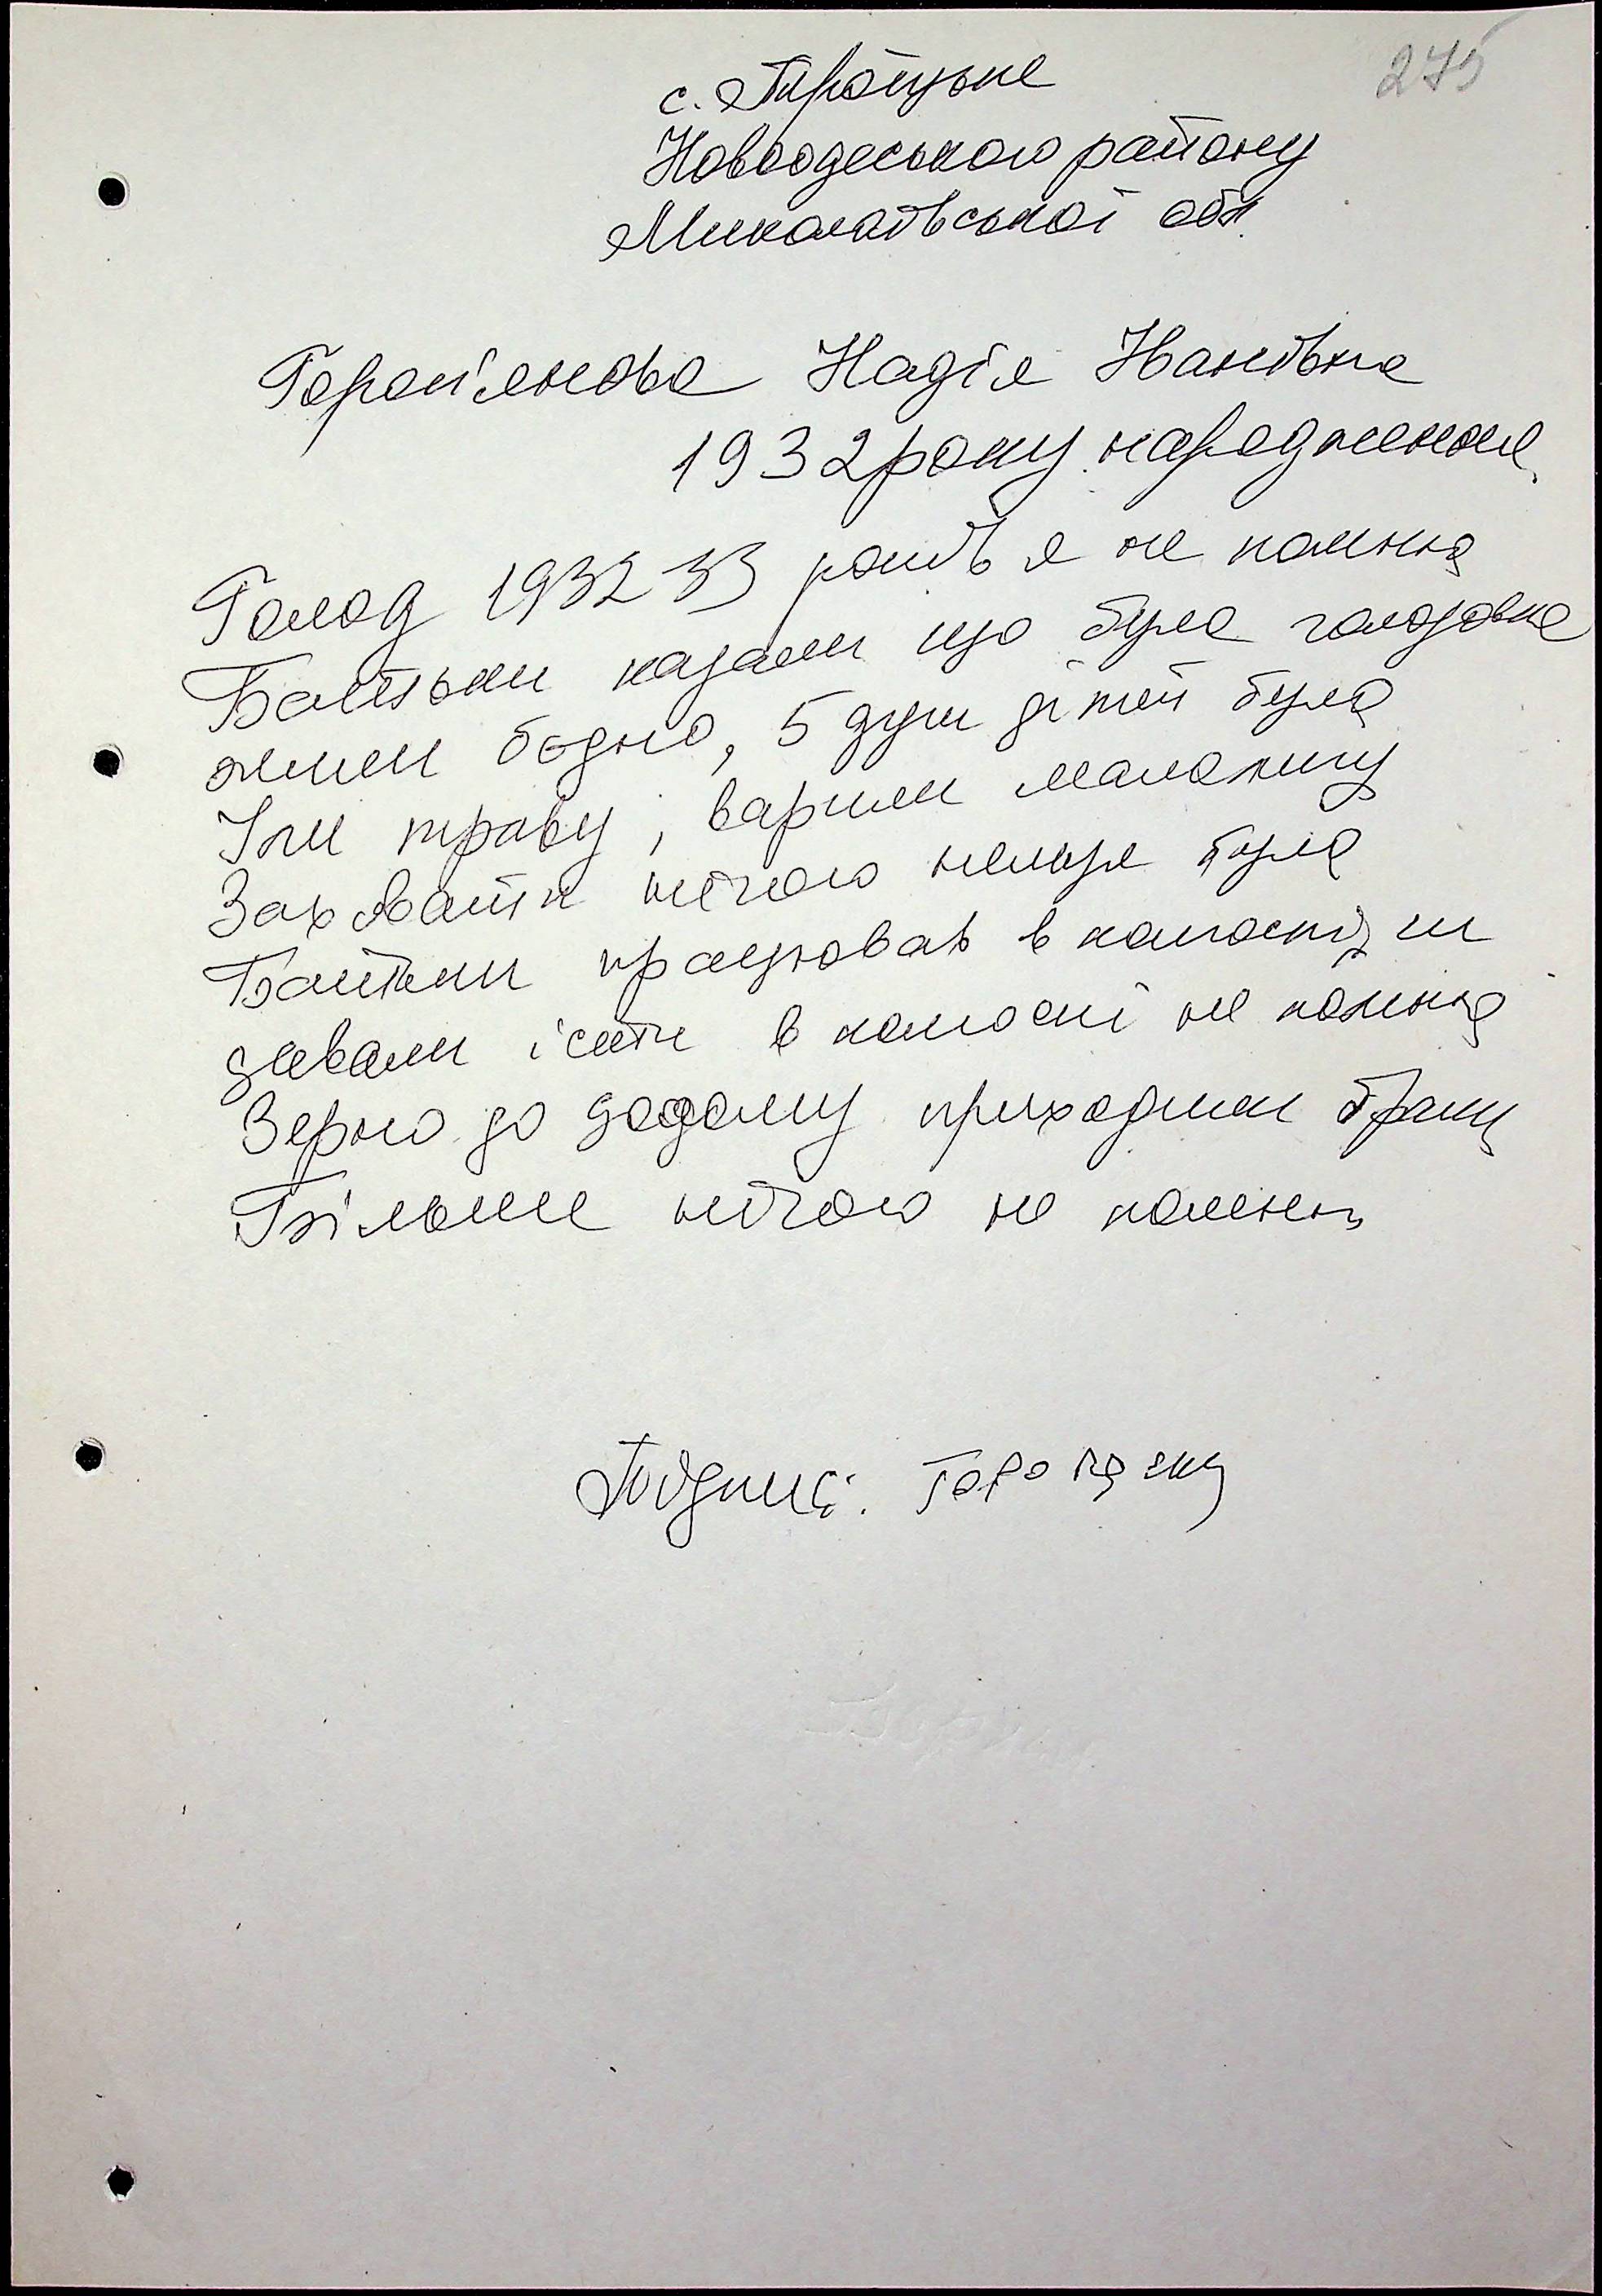 275
с. Троїцьке
Новоодеського району
Миколаївської обл.
Надія Іванівна
1932 року народження
Голод 1932 33 років я не помню
Батьки казали що була голодовка
жили бєдно, 5 душ дітей було
Їли траву, варили мамалигу
Заховати нічого нельзя було
Батьки працювал в колгоспі, чи
давали їсти в колгоспі не помню
Зерно до додому приходили брали
Більше нічого не помню
Підпис: